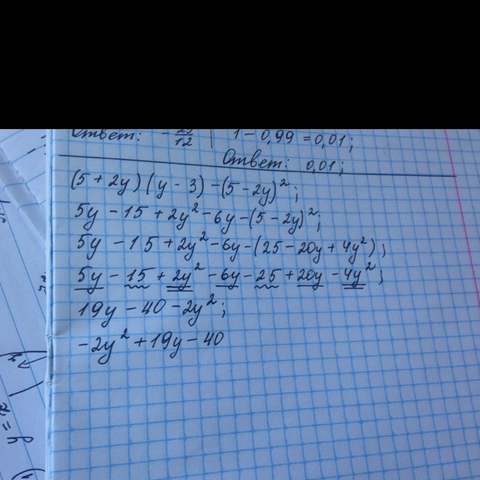 Ответ: - 25/12 | 1 - 0,99 = 0,01;
Ответ: 0,01;
(5 + 2y)(y - 3) - (5 - 2y)²;
5y - 15 + 2y² - 6y - (5 - 2y)²;
5y - 15 + 2y² - 6y - (25 - 20y + 4y²);
5y - 15 + 2y² - 6y - 25 + 20y - 4y²;
19y - 40 - 2y²;
-2y² + 19y - 40